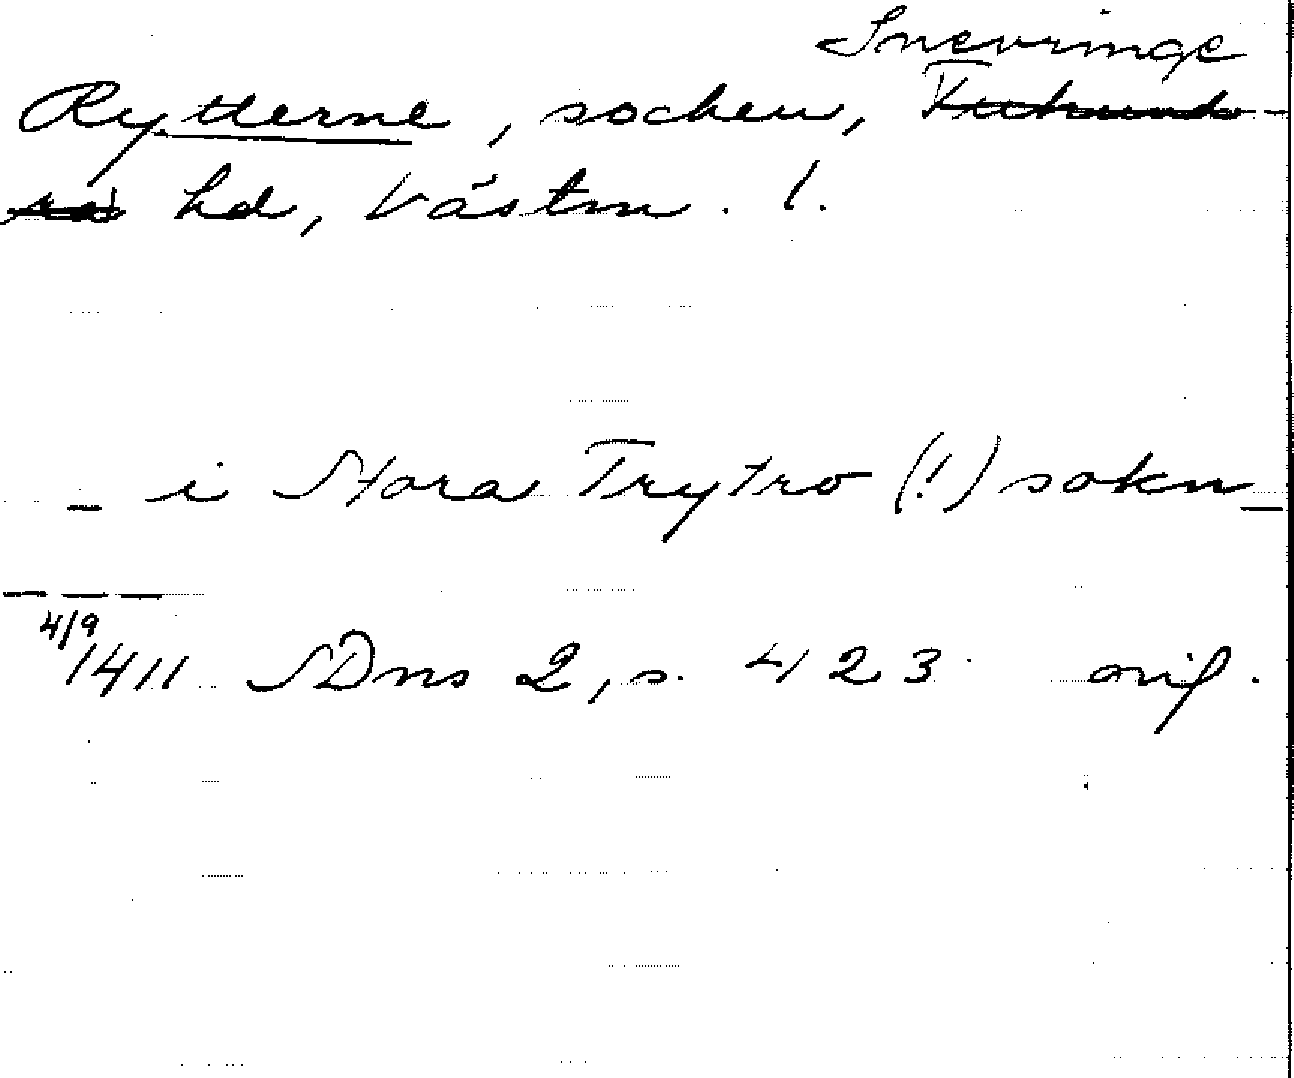 Snevringe
Rytterne, socken, Tuhunds-
ra hd, Västm. l.
_ i Stora Trytro (!) sokn _
_ _ _
4/9 1411 SDns 2, s. 423 orig.